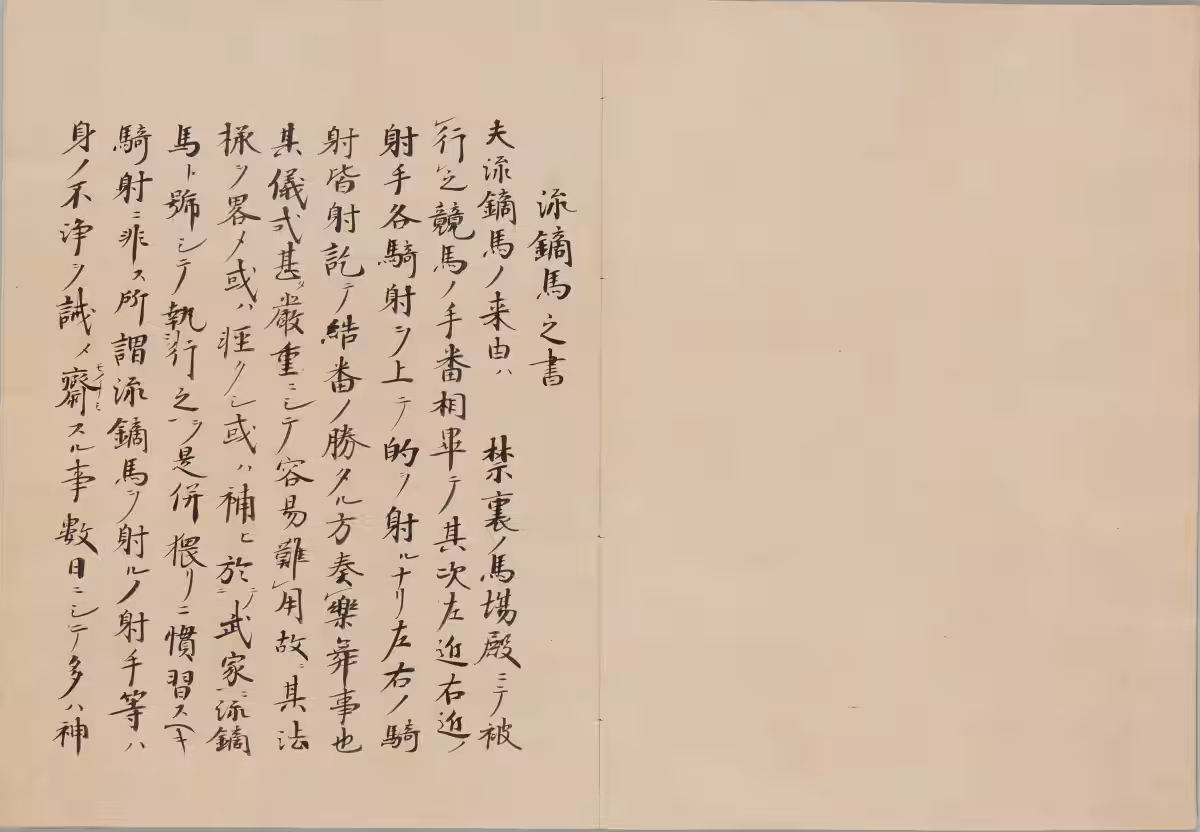 流鏑馬之書
夫流鏑馬ノ来由ハ　禁裏ノ馬場殿ニテ被
行之競馬ノ手番相畢テ其次左近右近ノ
射手各騎射ヲ上テ的ヲ射ルナリ左右ノ騎
射皆射訖テ結番ノ勝タル方奏樂舞事也
其儀式甚タ嚴重ニシテ容易難用故ニ其法
様ヲ畧メ或ハ狂クシ或ハ補ヒ於テ武家ニ流鏑
馬ト號シテ執行之ヲ是併猥リニ慣習スヘキ
騎射ニ非ス所謂流鏑馬ヲ射ルノ射手等ハ
身ノ不浄ヲ誡メ齋スル事數日ニシテ多ハ神